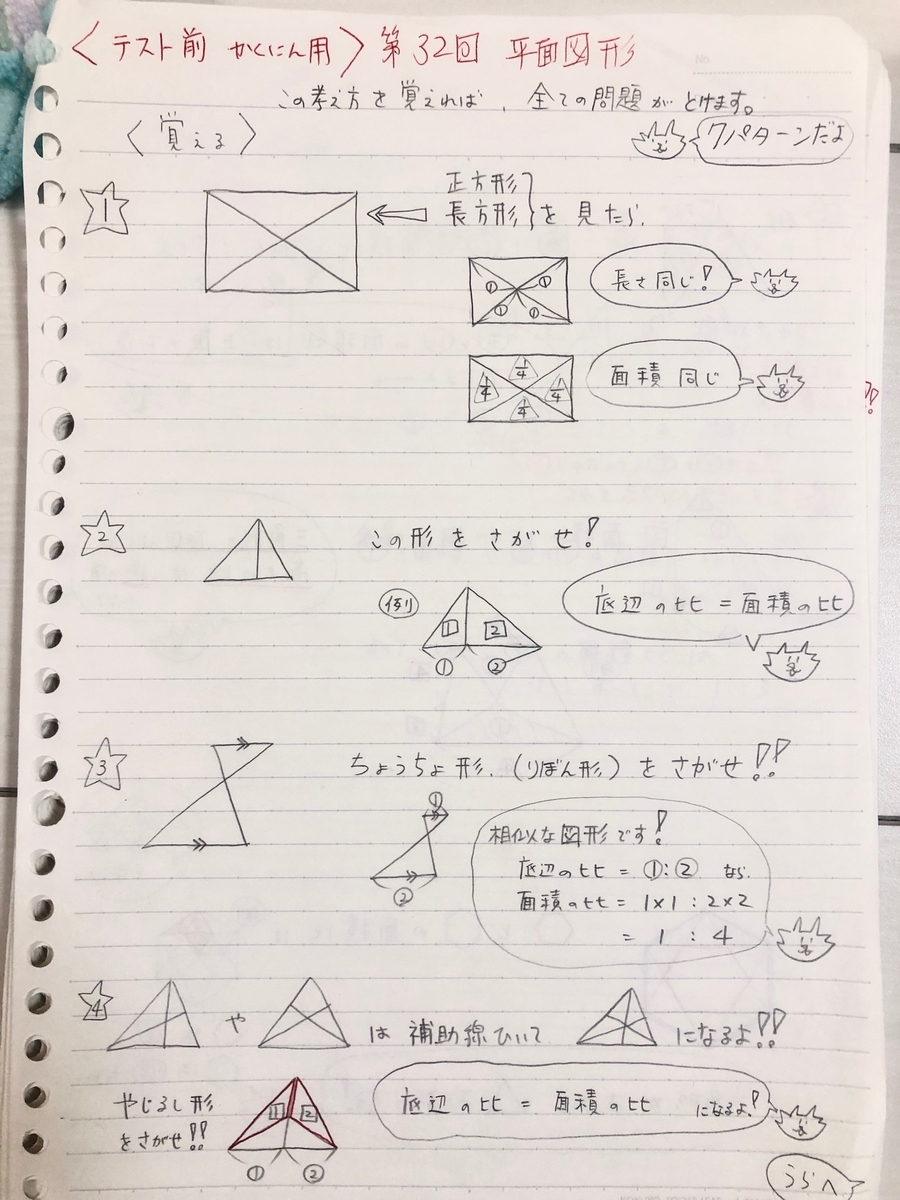 〈テスト前 かくにん用〉第32回 平面図形
この考え方を覚えれば、全ての問題がとけます。
〈覚える〉
7パターンだよ
1
正方形
長方形
を見たら、
① ① ① ①
長さ同じ!
1/4 1/4 1/4 1/4
面積同じ
2
この形をさがせ!
例
1 2
① ②
底辺の比=面積の比
3
ちょうちょ形、(りぼん形)をさがせ!!
①
②
相似な図形です!
底辺の比=①:②なら、
面積の比=1×1:2×2
=1:4
4
や
は補助線ひいて
になるよ!!
やじるし形
をさがせ!!
1 2
① ②
底辺の比=面積の比 になるよ!
うらへ
!!